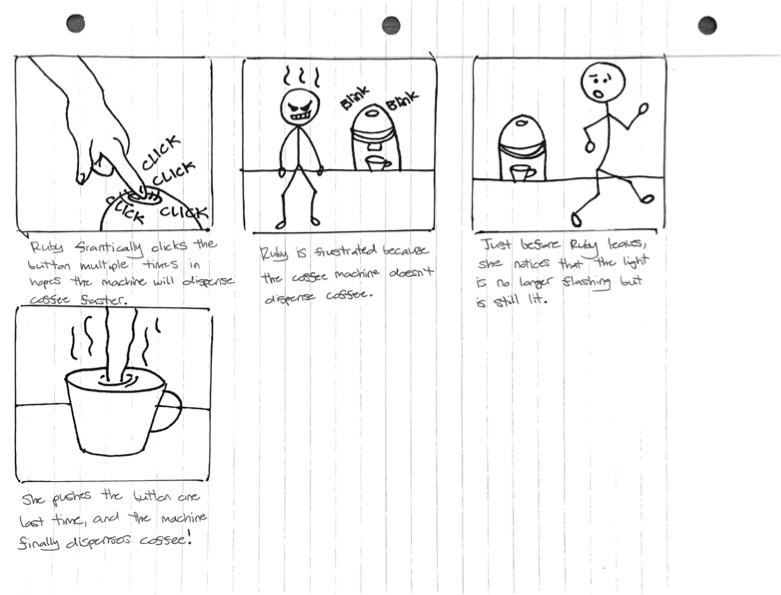 CLICK
CLICK
CLICK
CLICK
Ruby frantically clicks the
button multiple times in
hopes the machine will dispense
coffee faster.
Blink
Blink
Ruby is frustrated because
the coffee machine doesn't
dispense coffee.
Just before Ruby leaves,
she notices that the light
is no longer flashing but
is still lit.
She pushes the button one
last time, and the machine
finally dispenses coffee!